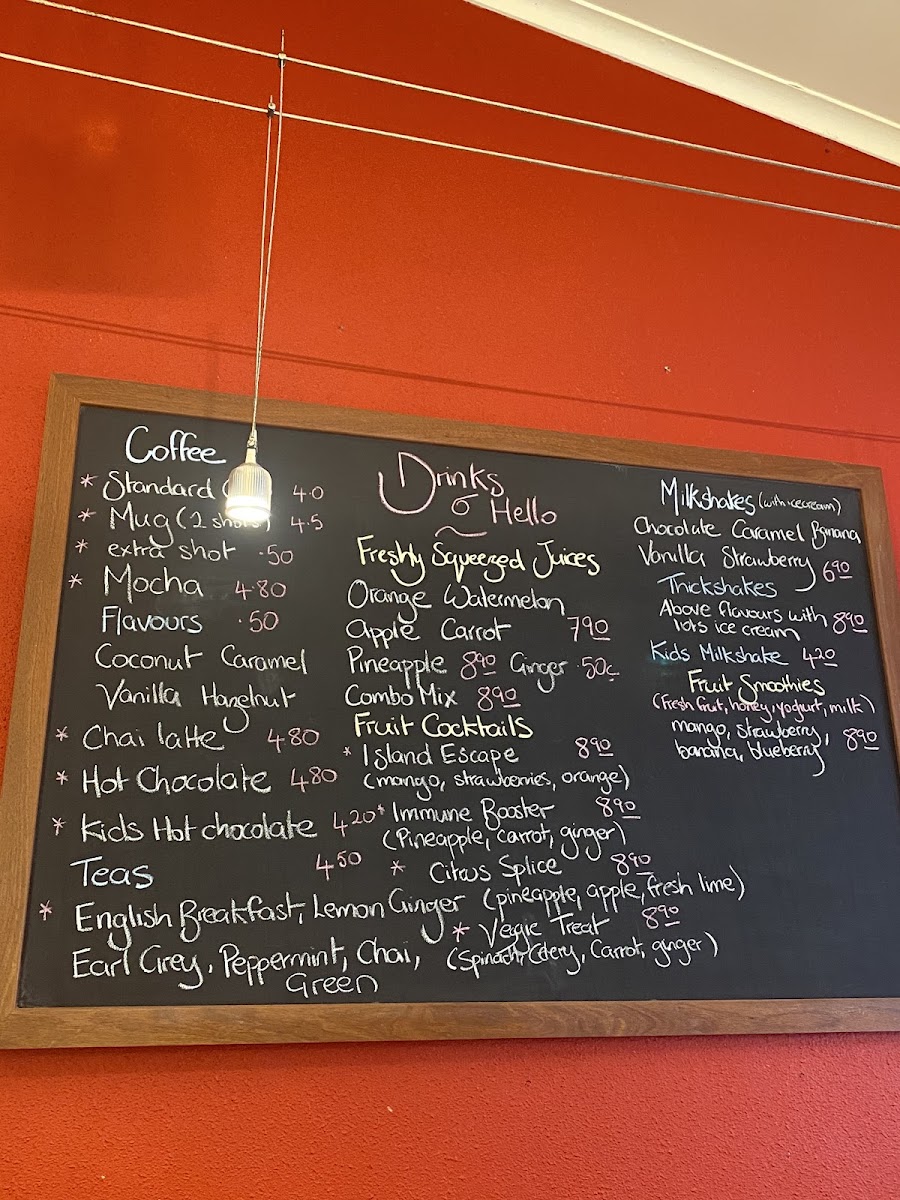 Coffee
* Standard 4.0
* Mug (2 shots) 4.5
* extra shot .50
* Mocha 4.80
Flavours .50
Coconut Caramel
Vanilla Hazelnut
* Chai latte 4.80
* Hot Chocolate 4.80
* Kids Hot chocolate 4.20
Teas 4.50
* English Breakfast, Lemon Ginger
Earl Grey, Peppermint, Chai,
Green
Drinks
@ Hello
Freshly Squeezed Juices
Orange Watermelon
Apple Carrot 7.90
Pineapple 8.90 Ginger .50c
Combo Mix 8.90
Fruit Cocktails
* Island Escape 8.90
(mango, strawberries, orange)
* Immune Booster 8.90
(Pineapple, carrot, ginger)
* Citrus Splice 8.90
(pineapple, apple, fresh lime)
* Vegie Treat 8.90
(Spinach, Celery, Carrot, ginger)
Milkshakes (with icecream)
Chocolate Caramel Banana
Vanilla Strawberry 6.90
Thickshakes
Above flavours with
lots ice cream 8.90
Kids Milkshake 4.20
Fruit Smoothies
(fresh fruit, honey, yoghurt, milk)
mango, strawberry,
banana, blueberry 8.90